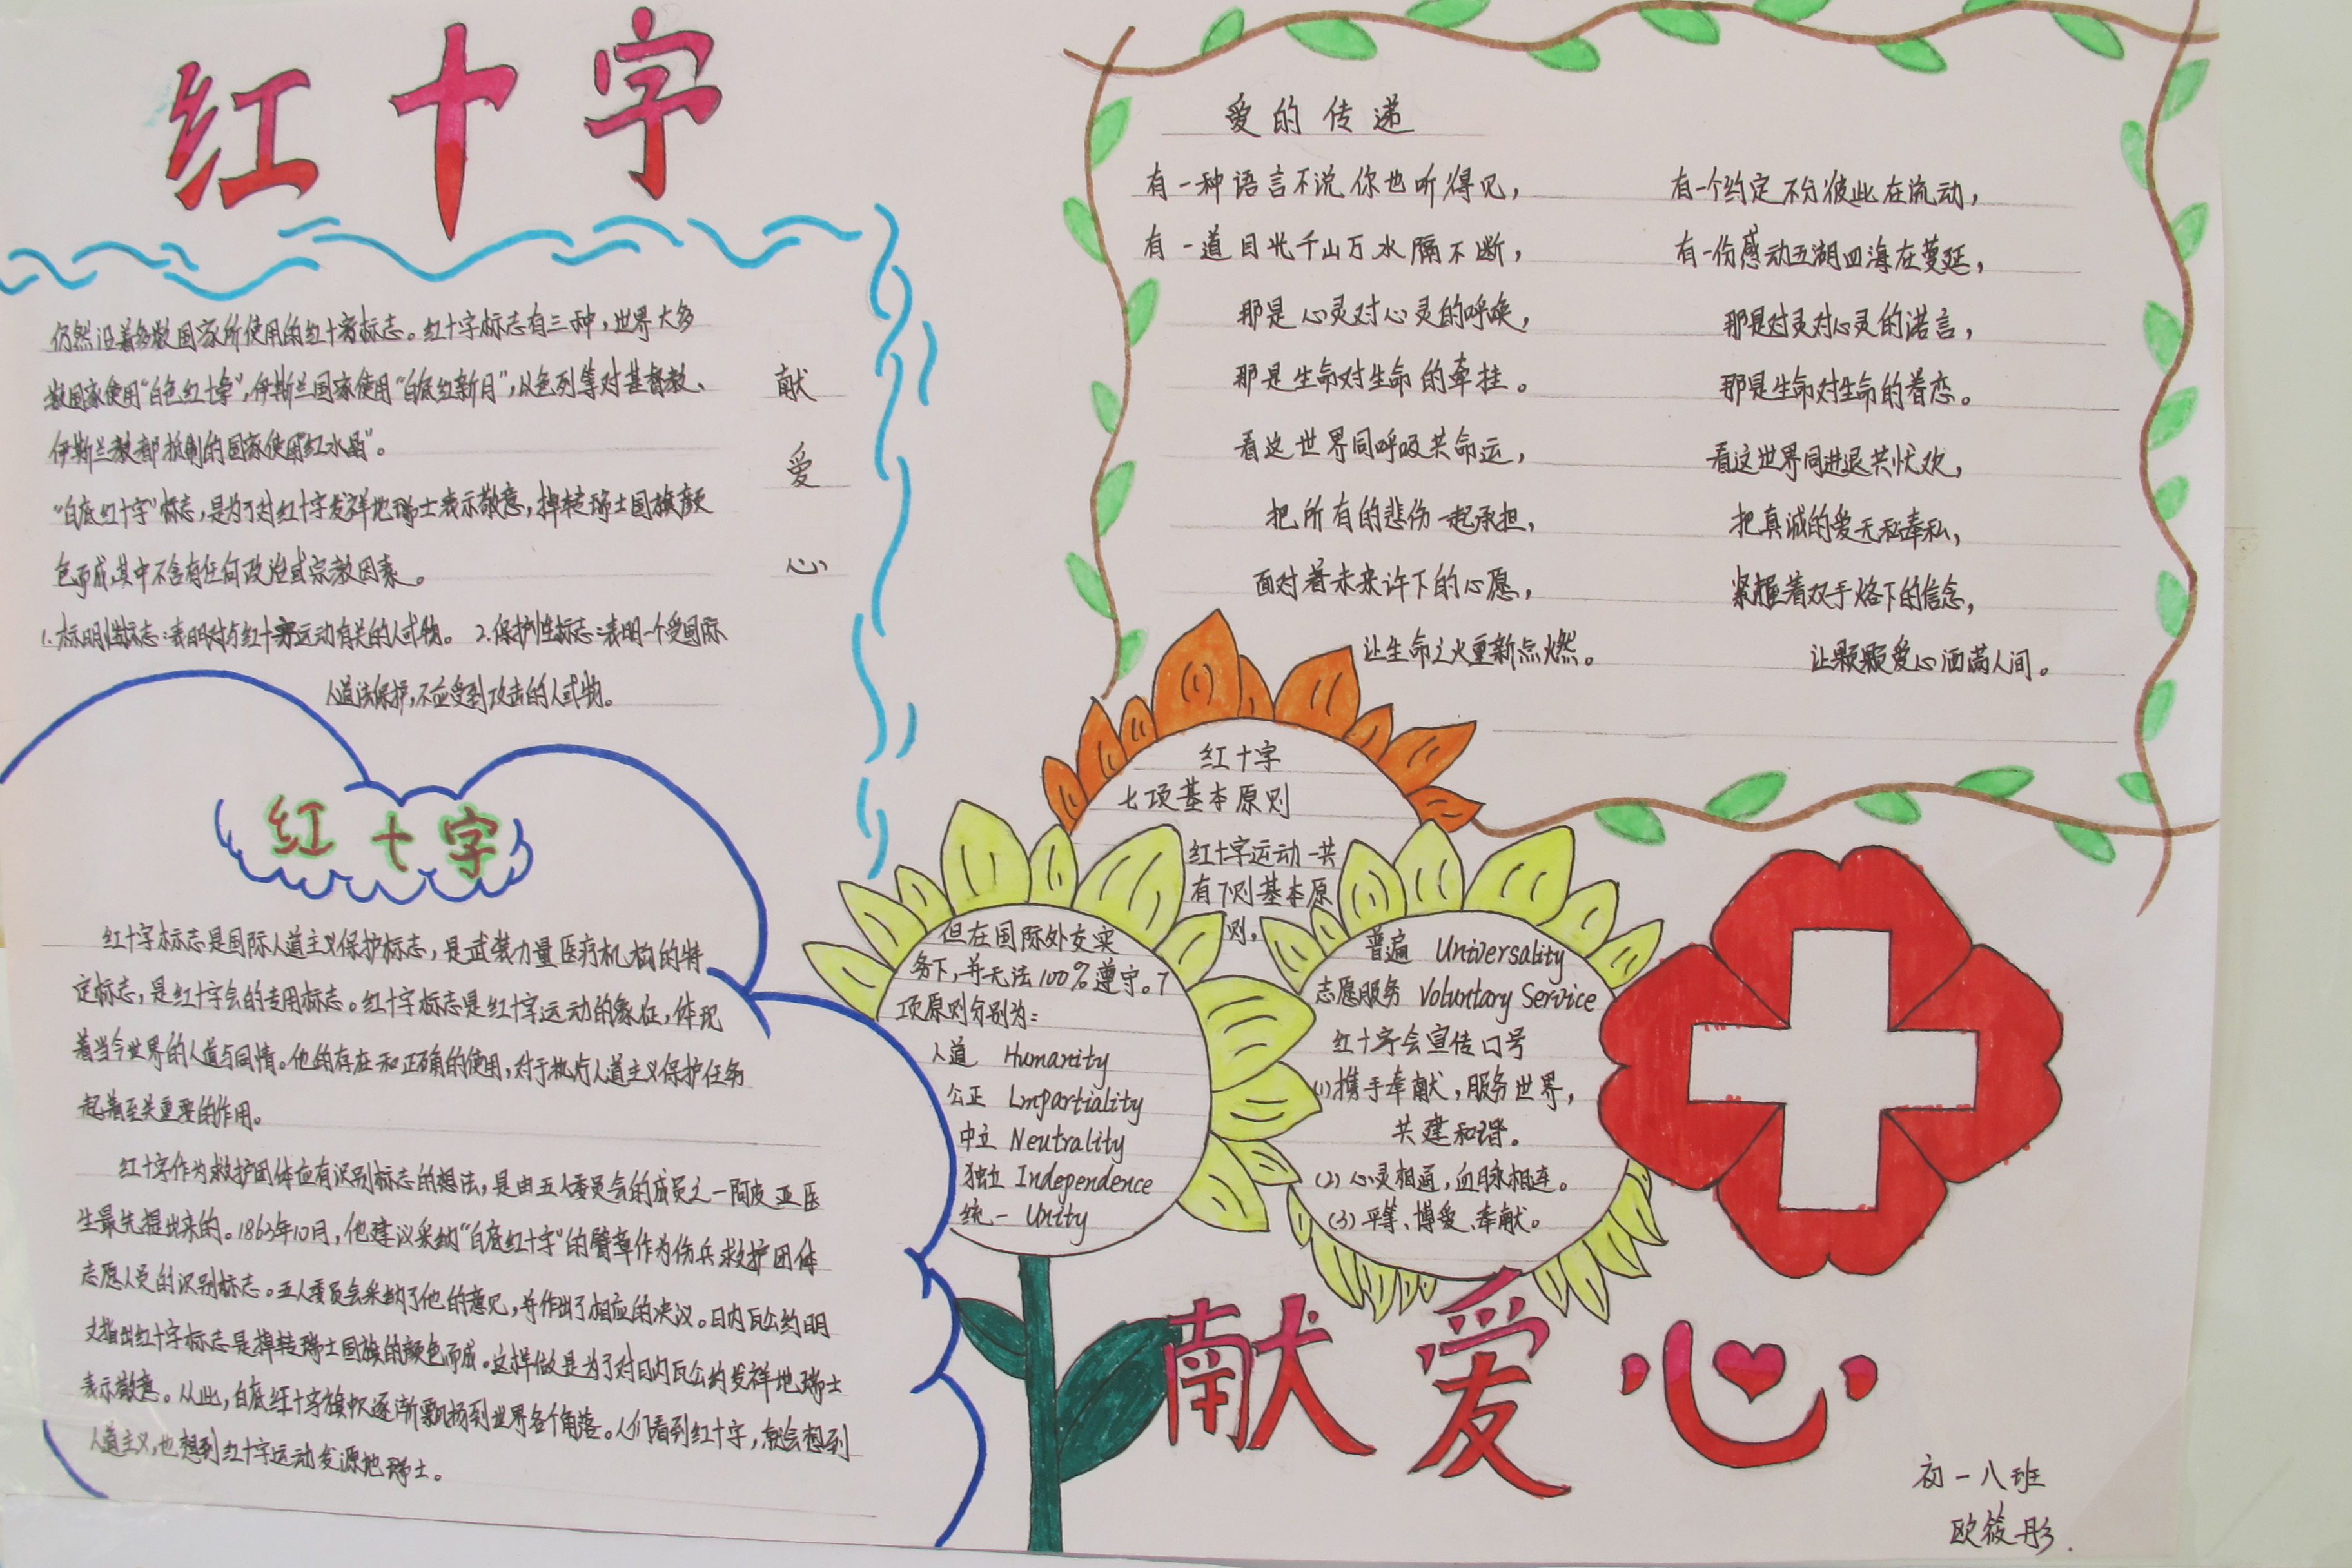 红十字
仍然沿着多数国家所使用的红十字标志。红十字标志有三种，世界大多
数国家使用“白色红十字”，伊斯兰国家使用“白底红新月”，以色列等对基督教、
伊斯兰教都抵制的国家使用“红水晶”。
“白底红十字”标志，是为了对红十字发祥地瑞士表示敬意，掉转瑞士国旗颜
色而成，其中不含有任何政治或宗教因素。
1.标明性标志：表明对与红十字运动有关的人或物。 2.保护性标志：表明一个受国际
人道法保护，不应受到攻击的人或物。
献
爱
心
红十字
红十字标志是国际人道主义保护标志，是武装力量医疗机构的特
定标志，是红十字会的专用标志。红十字标志是红十字运动的象征，体现
着当今世界的人道与同情。他的存在和正确的使用，对于执行人道主义保护任务
起着至关重要的作用。
红十字作为救护团体应有识别标志的想法，是由五人委员会的成员之一阿皮亚医
生最先提出来的。1863年10月，他建议采纳“白底红十字”的臂章作为伤兵救护团体
志愿人员的识别标志。五人委员会采纳了他的意见，并作出了相应的决议。日内瓦公约明
文指出红十字标志是掉转瑞士国旗的颜色而成。这样做是为了对日内瓦公约发祥地瑞士
表示敬意。从此，白底红十字旗帜逐渐飘扬到世界各个角落。人们看到红十字，就会想到
人道主义，也想到红十字运动发源地瑞士。
爱的传递
有一种语言不说你也听得见，
有一道目光千山万水隔不断，
那是心灵对心灵的呼唤，
那是生命对生命的牵挂。
看这世界同呼吸共命运，
把所有的悲伤一起承担，
面对着未来许下的心愿，
让生命之火重新点燃。
有一个约定不分彼此在流动，
有一份感动五湖四海在蔓延，
那是对灵对心灵的诺言，
那是生命对生命的眷恋。
看这世界同进退共忧欢，
把真诚的爱无私奉私，
紧握着双手烙下的信念，
让颗颗爱心洒满人间。
红十字
七项基本原则
红十字运动一共
有7则基本原
则，
但在国际外交实
务下，并无法100%遵守。7
项原则分别为：
人道 Humanity
公正 Lmpartiality
中立 Neutrality
独立 Independence
统一 Unity
普遍 Universality
志愿服务 Voluntary Service
红十字会宣传口号
(1)携手奉献，服务世界，
共建和谐。
(2) 心灵相通，血脉相连。
(3) 平等、博爱、奉献。
献爱心
初一八班
欧筱彤